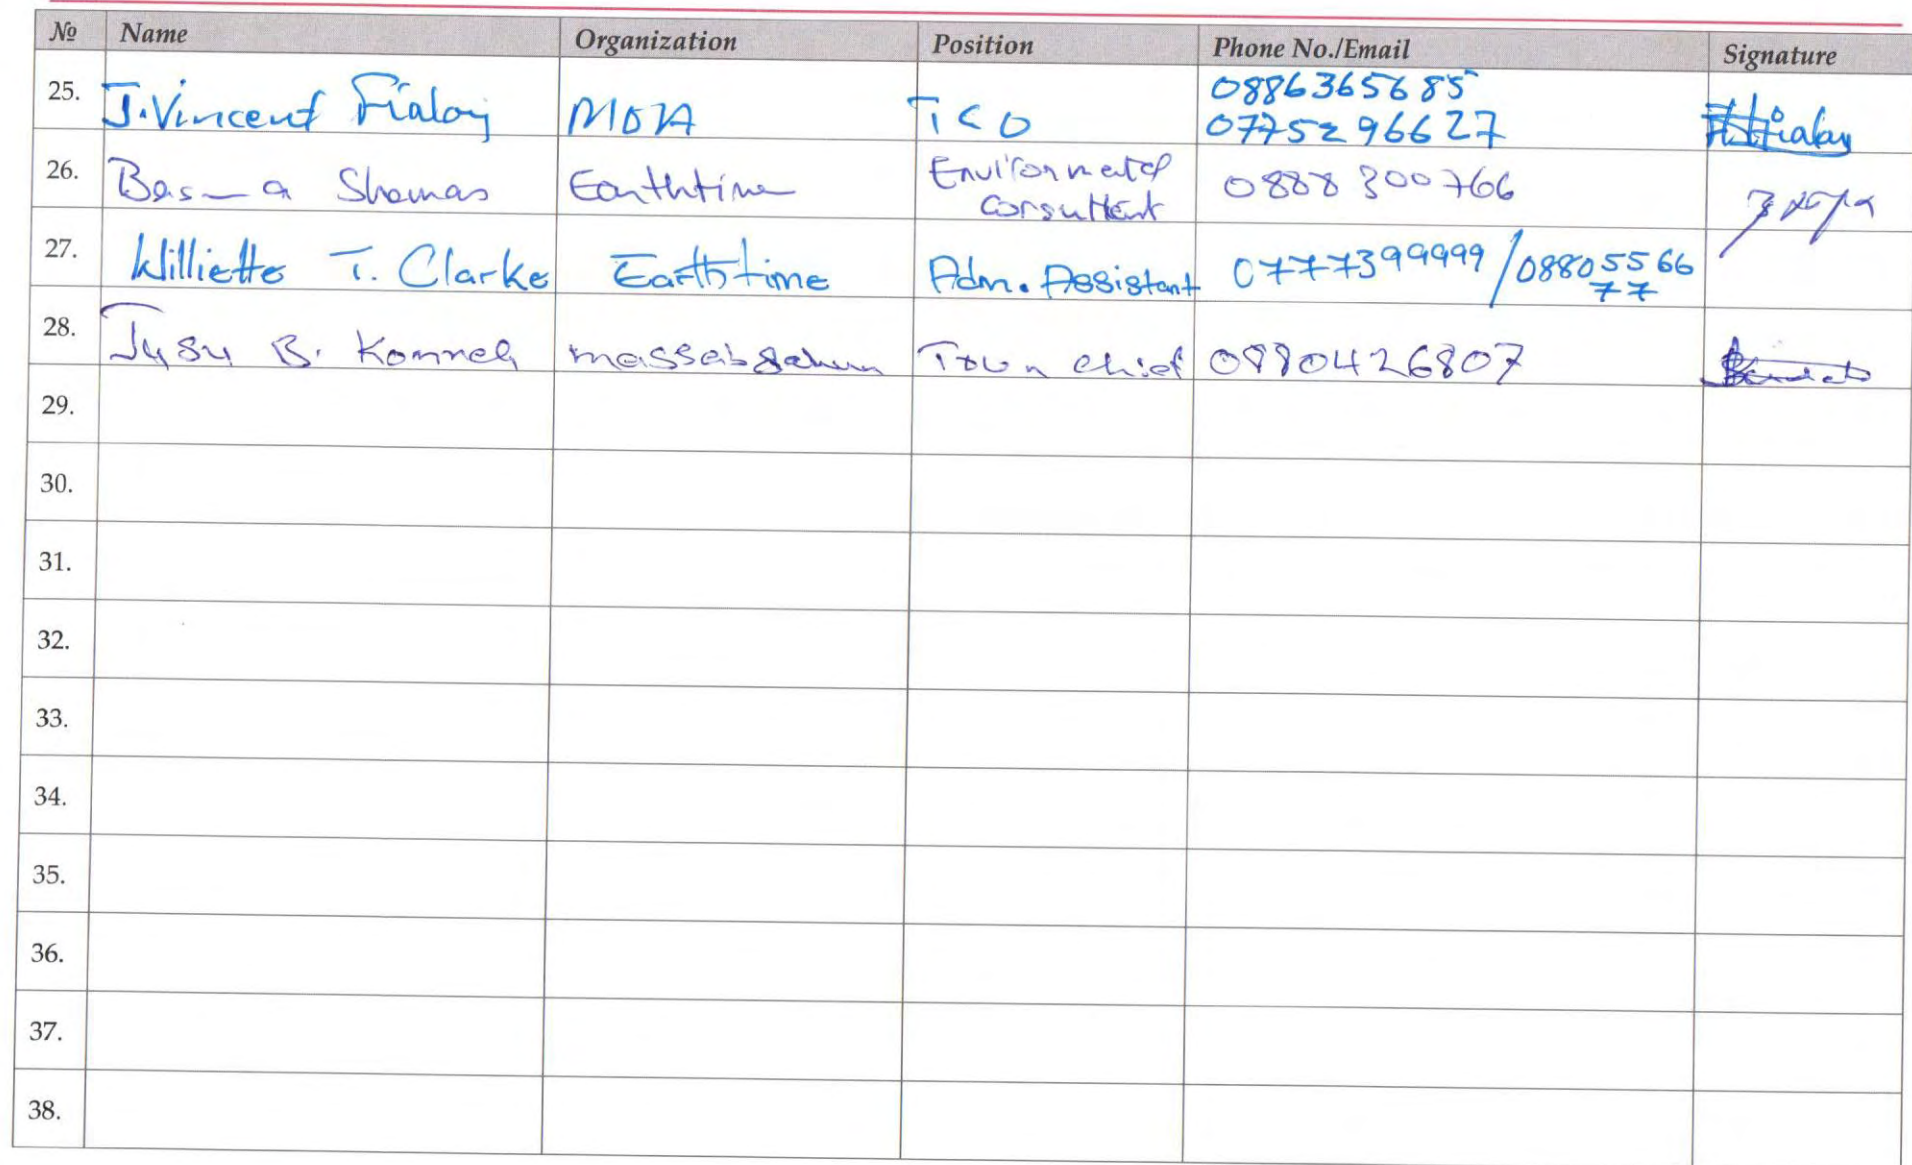 № Name Organization Position Phone No./Email Signature
25. J. Vincent Fialoy MOIA TCO 0886365685
0775296627
26. Basma Shamas Earthtime Environmental
Consultant 0888300766
27. Williette T. Clarke Earthtime Adm. Assistant 0777399999 / 08805566
77
28. B. Town chief 0880426807
29.
30.
31.
32.
33.
34.
35.
36.
37.
38.